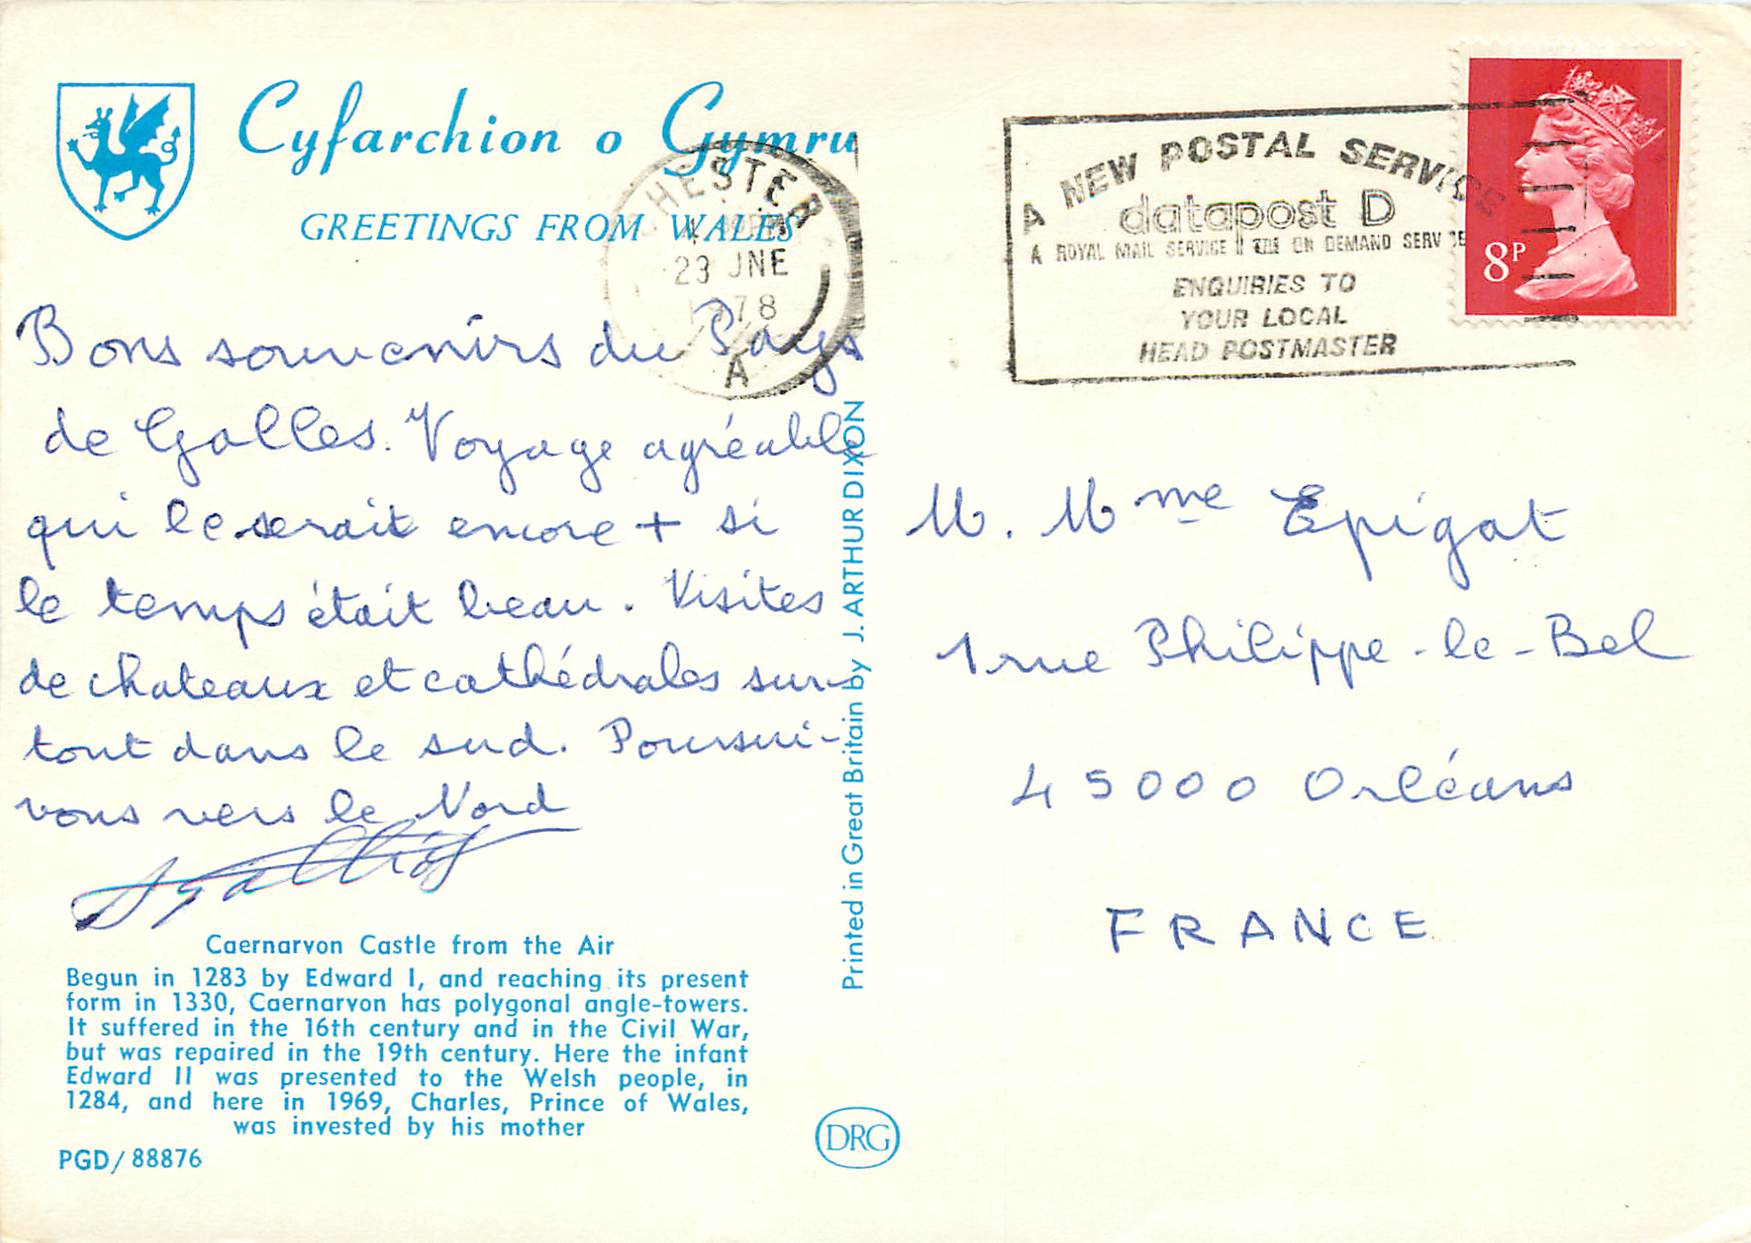 Cyfarchion o Gymru
GREETINGS FROM WALES
HESTER
23 JNE
1978
A
A NEW POSTAL SERVICE
datapost D
A ROYAL MAIL SERVICE ON DEMAND SERVICE
ENQUIRIES TO
YOUR LOCAL
HEAD POSTMASTER
8P
Bons souvenirs du Pays
de Galles. Voyage agréable
qui le serait encore + si
le temps était beau. Visites
de chateaux et cathédrales sur-
tout dans le sud. Poursui-
vons vers le Nord
Caernarvon Castle from the Air
Begun in 1283 by Edward I, and reaching its present
form in 1330, Caernarvon has polygonal angle-towers.
It suffered in the 16th century and in the Civil War,
but was repaired in the 19th century. Here the infant
Edward II was presented to the Welsh people, in
1284, and here in 1969, Charles, Prince of Wales,
was invested by his mother
PGD/88876
Printed in Great Britain by J. ARTHUR DIXON
DRG
M. Mme Epigat
1 rue Philippe-le-Bel
45000 Orléans
FRANCE